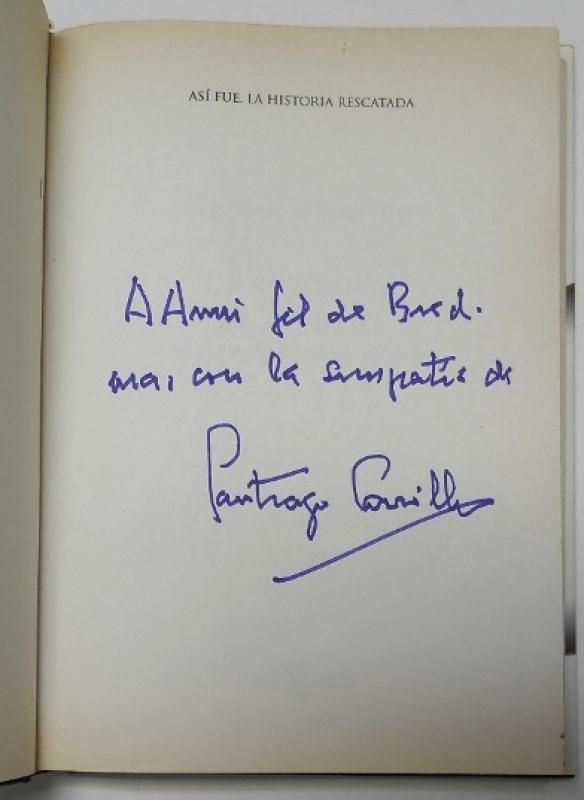 ASÍ FUE. LA HISTORIA RESCATADA
A Anni Gil de Bied.
ma, con la simpatía de
Santiago Carrillo